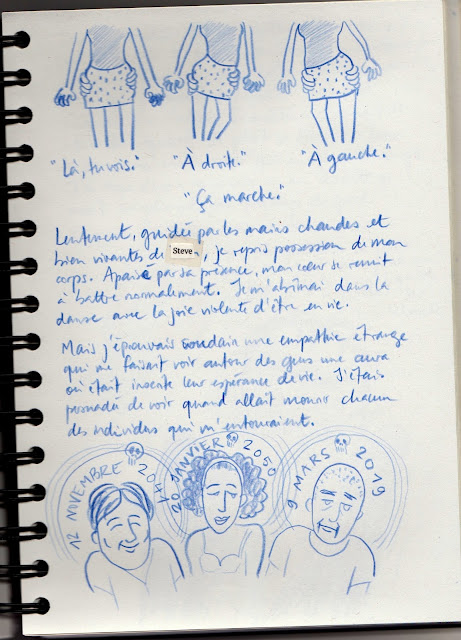 "Là, tu vois."
"À droite."
"À gauche."
"Ça marche."
Lentement, guidée par les mains chaudes et
bien vivantes de Steve, je repris possession de mon
corps. Apaisé par sa présence, mon cœur se remit
à battre normalement. Je m'abîmai dans la
danse avec la joie violente d'être en vie.
Mais j'éprouvais soudain une empathie étrange
qui me faisait voir autour des gens une aura
où était inscrite leur espérance de vie. J'étais
persuadée de voir quand allait mourir chacun
des individus qui m'entouraient.
12 NOVEMBRE 2041
20 JANVIER 2050
9 MARS 2019